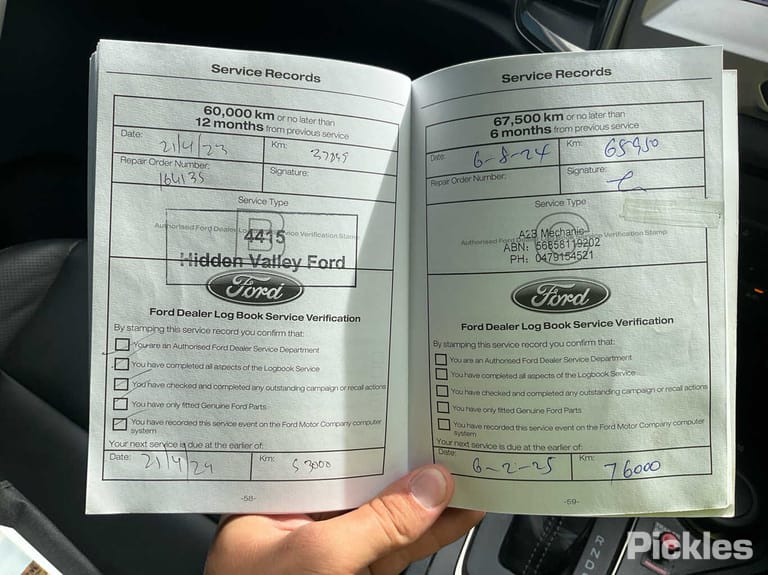 Service Records
60,000 km or no later than
12 months from previous service
Date: 21/4/23 Km:
Repair Order Number: 164135 Signature:
Service Type
Authorised Ford Dealer Log Service Verification Stamp
B
4415
Hidden Valley Ford
Ford
Ford Dealer Log Book Service Verification
By stamping this service record you confirm that:
You are an Authorised Ford Dealer Service Department
You have completed all aspects of the Logbook Service
You have checked and completed any outstanding campaign or recall actions
You have only fitted Genuine Ford Parts
You have recorded this service event on the Ford Motor Company computer
system
Your next service is due at the earlier of:
Date: 21/4/24 Km: 53000
-58-
Service Records
67,500 km or no later than
6 months from previous service
Date: 6-8-24 Km: 65950
Repair Order Number: Signature:
Service Type
Authorised Ford Service Verification Stamp
A2B Mechanic
ABN: 56658119202
PH: 0479154521
Ford
Ford Dealer Log Book Service Verification
By stamping this service record you confirm that:
You are an Authorised Ford Dealer Service Department
You have completed all aspects of the Logbook Service
You have checked and completed any outstanding campaign or recall actions
You have only fitted Genuine Ford Parts
You have recorded this service event on the Ford Motor Company computer
system
Your next service is due at the earlier of:
Date: 6-2-25 Km: 76000
-59-
R N D
Pickles